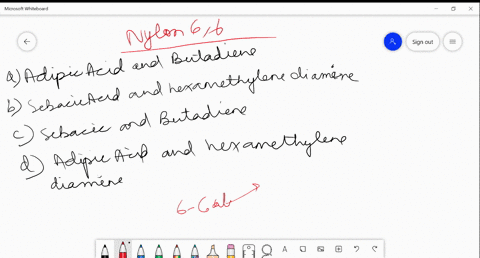 Microsoft Whiteboard
Sign out
Nylon 6,6
a) Adipic Acid and Butadiene
b) Sebacic Acid and hexamethylene diamene
c) Sebacic and Butadiene
d) Adipic Acid and hexamethylene
diamene
6-